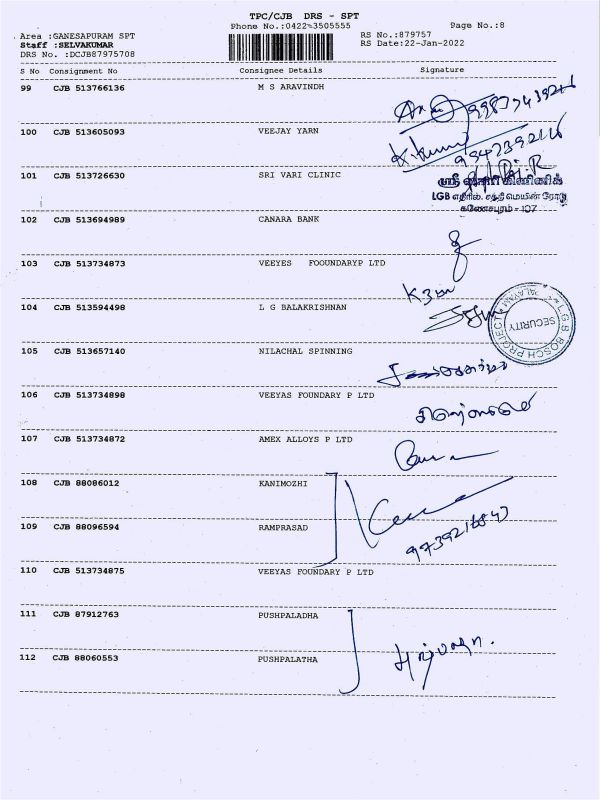 TPC/CJB DRS - SPT
Phone No.:0422-3505555
Page No.:8
Area :GANESAPURAM SPT
RS No.:879757
Staff :SELVAKUMAR
RS Date:22-Jan-2022
DRS No. :DCJB87975708
S No Consignment No Consignee Details Signature
99 CJB 513766136 M S ARAVINDH
100 CJB 513605093 VEEJAY YARN
9947392116
101 CJB 513726630 SRI VARI CLINIC
ஸ்ரீ வாரி கிளினிக்
LGB எதிரில், சத்தி மெயின் ரோடு
கணேசபுரம் - 107
102 CJB 513694989 CANARA BANK
103 CJB 513734873 VEEYES FOOUNDARYP LTD
104 CJB 513594498 L G BALAKRISHNAN
L.G.B BOSCH PROJECT
SECURITY
105 CJB 513657140 NILACHAL SPINNING
106 CJB 513734898 VEEYAS FOUNDARY P LTD
107 CJB 513734872 AMEX ALLOYS P LTD
108 CJB 88086012 KANIMOZHI
109 CJB 88096594 RAMPRASAD
110 CJB 513734875 VEEYAS FOUNDARY P LTD
111 CJB 87912763 PUSHPALADHA
112 CJB 88060553 PUSHPALATHA